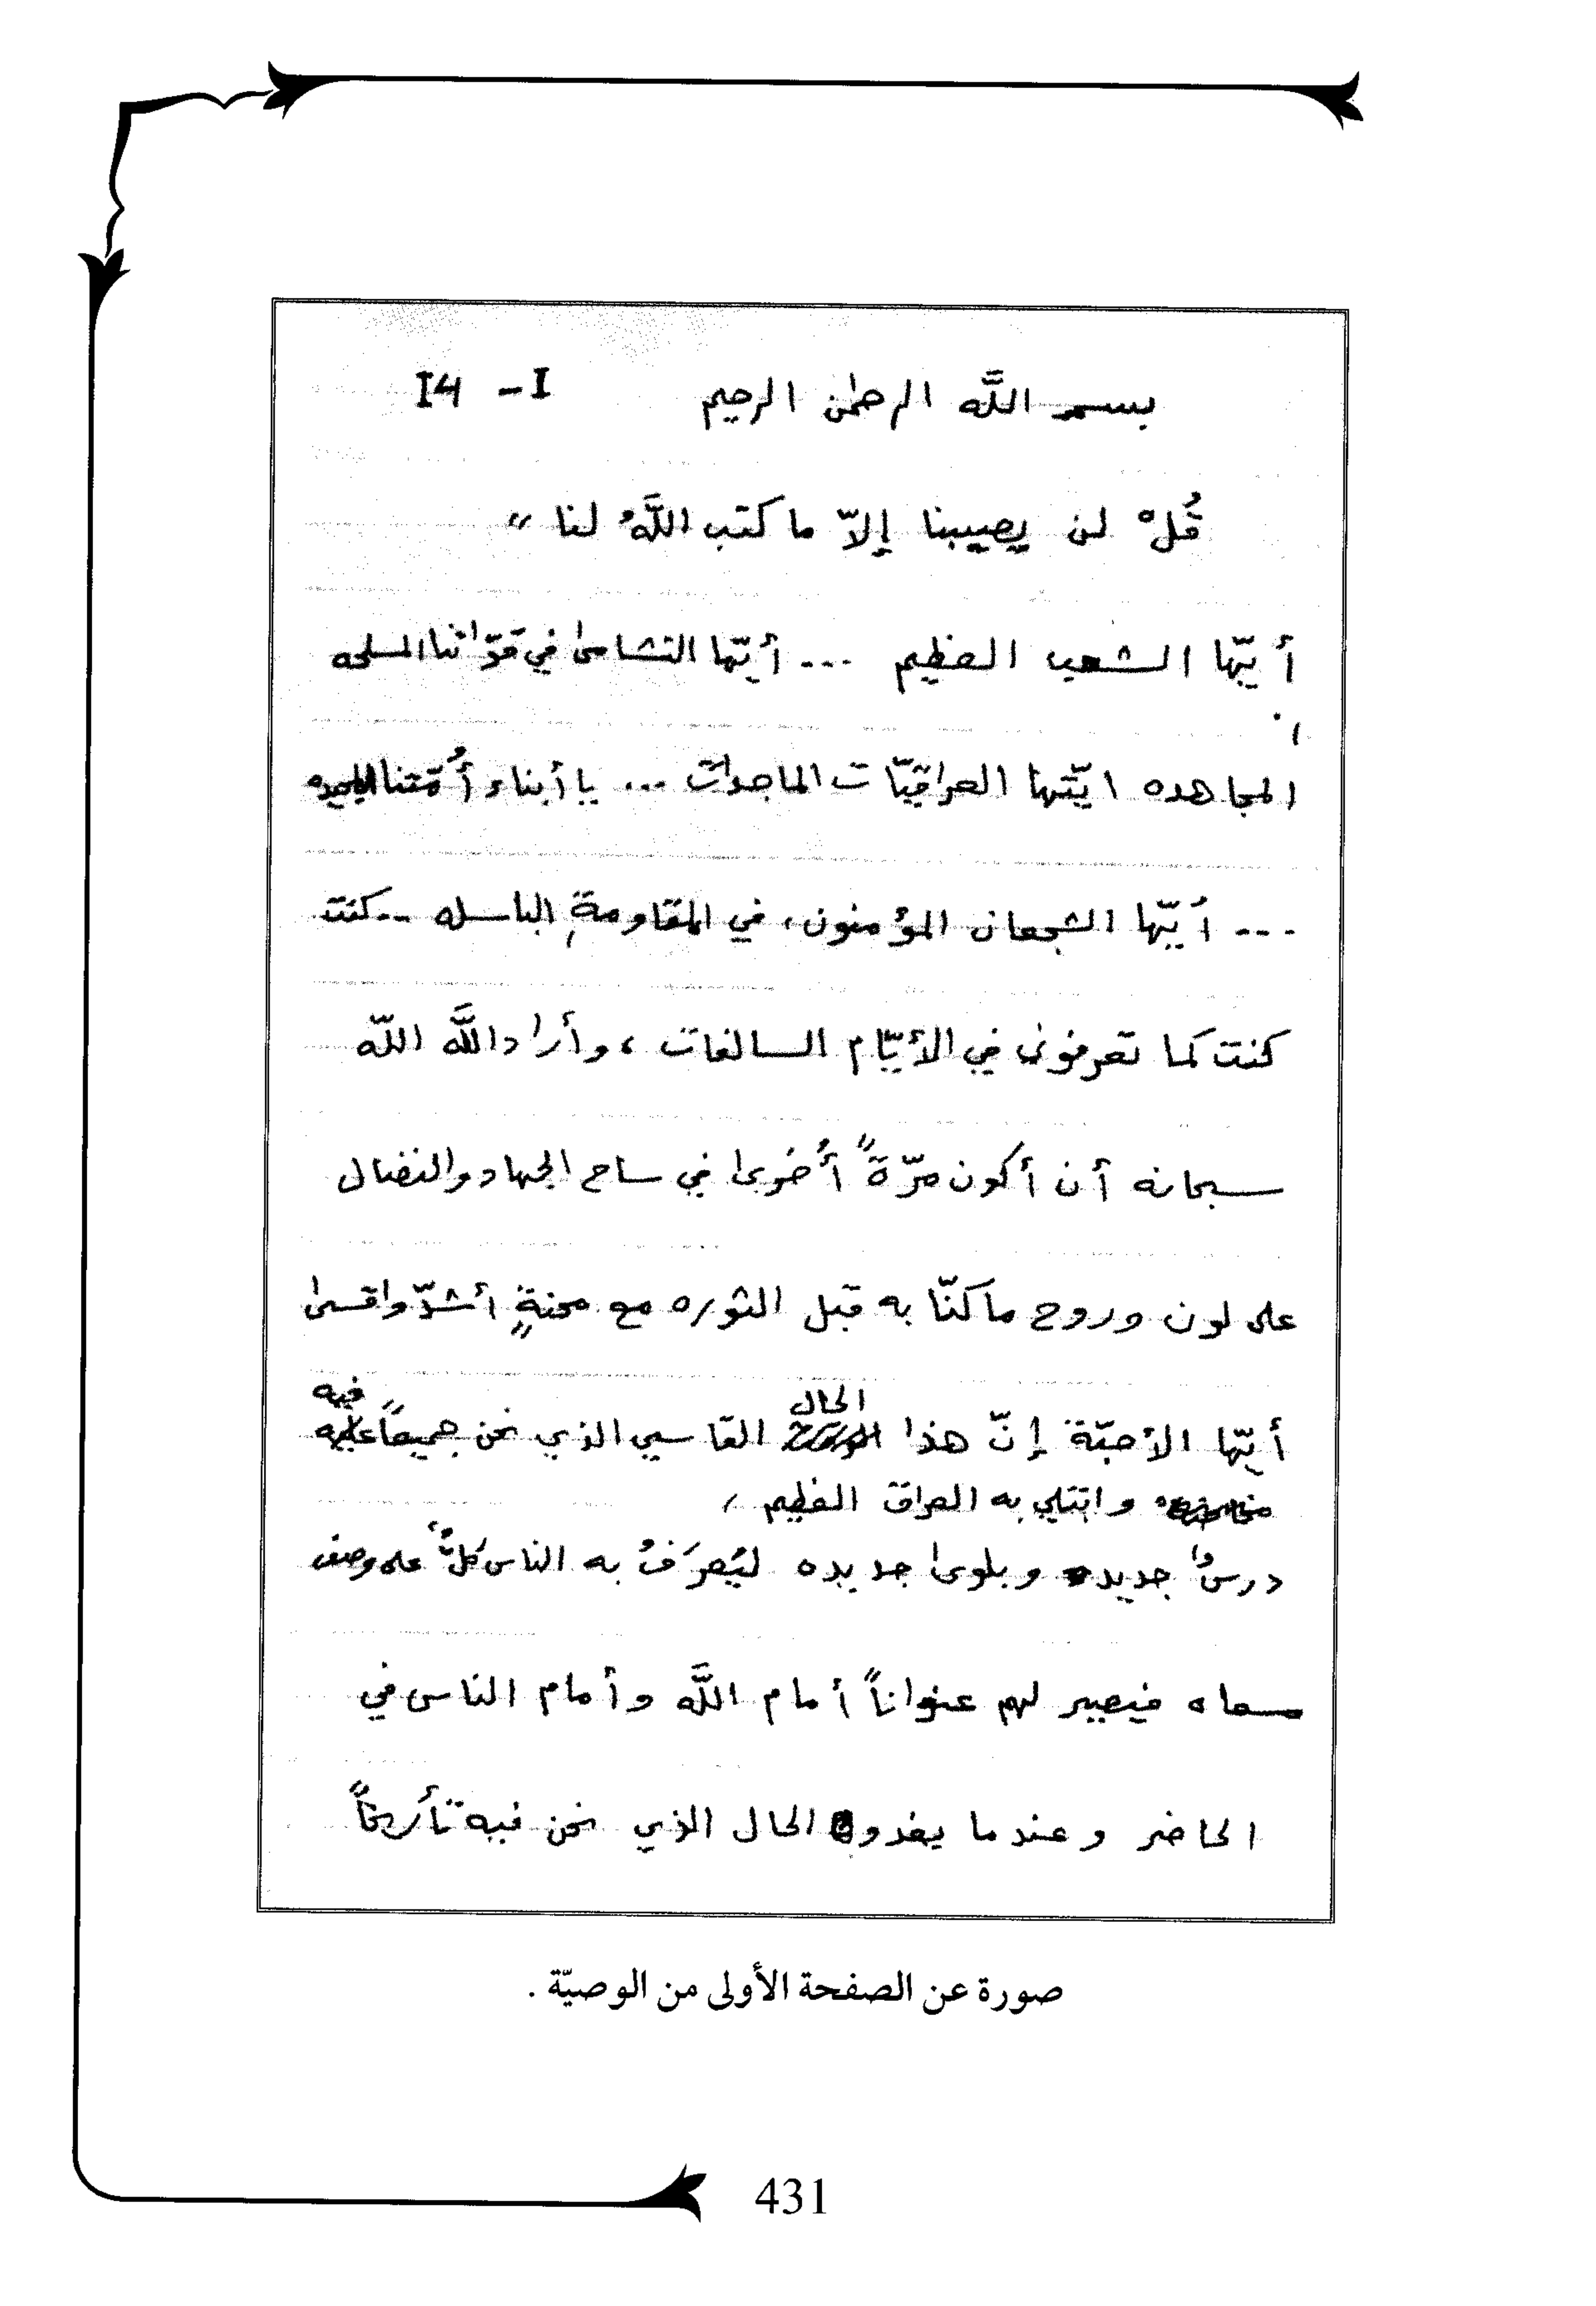 بسم اللَّه الرحمٰن الرحيم 14 - I
قُلْ لن يصيبنا إلاّ ما كتب اللَّهُ لنا "
أيّها الشعب العظيم ... أيّها النشامىٰ في قوّاتنا المسلحه
المجاهده ايّتها العراقيّات الماجدات ... يا أبناء أُمّتنا المجيده
... أيّها الشجعان المؤمنون، في المقاومةِ الباسله .. كنت
كنت كما تعرفوني في الأيّام السالفات ، وأراد اللَّه اللّه
سبحانه أن أكون مرّةً أُخرىٰ في ساح الجهاد والنضال
على لون وروح ما كنّا به قبل الثوره مع محنةٍ أشدّ واقسىٰ
أيّها الأحبّة إنّ هذا الحال القاسي الذي نحن جميعاً فيه
وابتلي به العراق العظيم ,
درسٌ جديد وبلوىٰ جديده ليُعرَفُ به الناس كلٌّ على وصف
مسعاه فيصير لهم عنواناً أمام اللَّه وأمام الناس في
الحاضر وعندما يغدو الحال الذي نحن فيه تأريخاً
صورة عن الصفحة الأولى من الوصيّة .
431